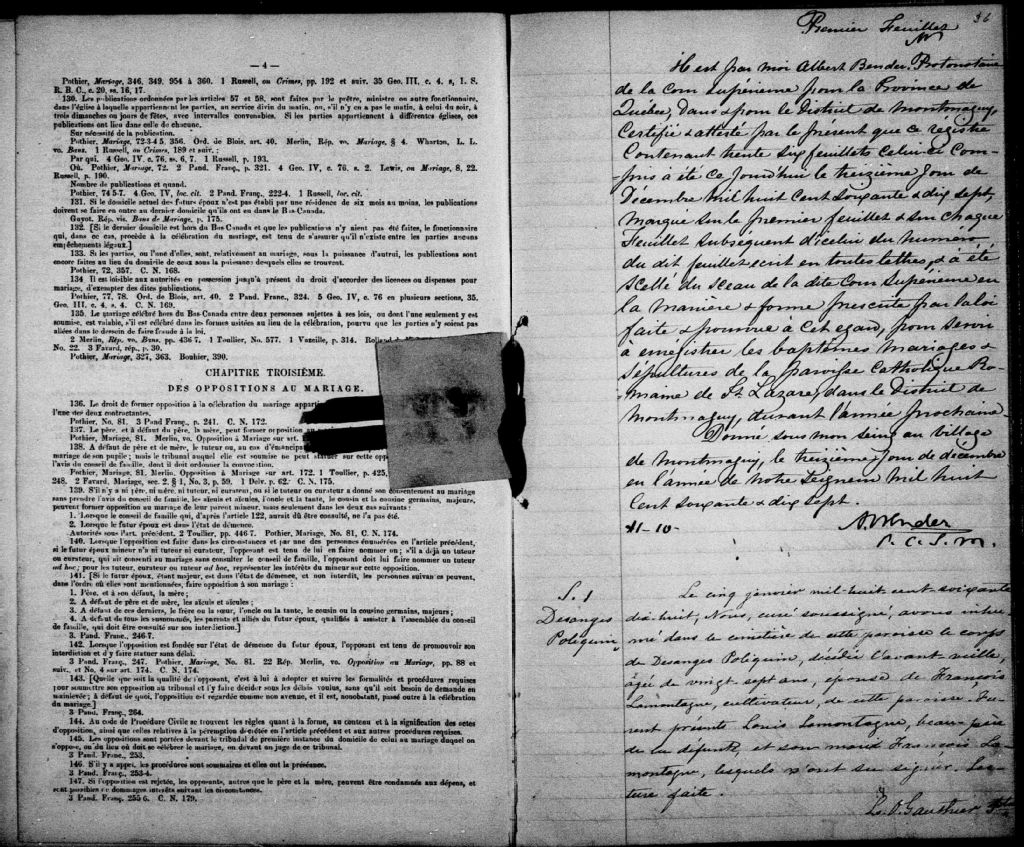 — 4 —
Pothier, Mariage, 346, 349, 954 à 360. 1 Russell, on Crimes, pp. 192 et suiv. 35 Geo. III, c. 4. s, I. S.
R. B. C., c. 20, ss. 16, 17.
130. Les publications ordonnées par les articles 57 et 58, sont faites par le prêtre, ministre ou autre fonctionnaire,
dans l'église à laquelle appartiennent les parties, au service divin du matin, ou, s'il n'y en a pas le matin, à celui du soir, à
trois dimanches ou jours de fêtes, avec intervalles convenables. Si les parties appartiennent à différentes églises, ces
publications ont lieu dans celle de chacune.
Sur nécessité de la publication.
Pothier, Mariage, 72-3-4 5, 356. Ord. de Blois, art. 40. Merlin, Rép. vo. Mariage, § 4. Wharton, L. L.
vo. Bans. 1 Russell, on Crimes, 189 et suiv. :
Par qui. 4 Geo. IV. c. 76, ss. 6, 7. 1 Russell, p. 193.
Où. Pothier, Mariage, 72. 2 Pand. Franç., p. 321. 4 Geo. IV, c. 76, s. 2. Lewis, on Mariage, 8, 22.
Russell, p. 190.
Nombre de publications et quand.
Pothier, 74 5-7. 4 Geo. IV, loc. cit. 2 Pand. Franç., 222-4. 1 Russell, loc. cit.
131. Si le domicile actuel des futurs époux n'est pas établi par une résidence de six mois au moins, les publications
doivent se faire en outre au dernier domicile qu'ils ont eu dans le Bas-Canada.
Guyot, Rép. vis. Bans de Mariage, p. 175.
132. [Si le dernier domicile est hors du Bas-Canada et que les publications n'y aient pas été faites, le fonctionnaire
qui, dans ce cas, procède à la célébration du mariage, est tenu de s'assurer qu'il n'existe entre les parties aucuns
empêchements légaux.]
133. Si les parties, ou l'une d'elles, sont, relativement au mariage, sous la puissance d'autrui, les publications sont
encore faites au lieu du domicile de ceux sous la puissance desquels elles se trouvent.
Pothier, 72, 357. C. N. 168.
134 Il est loisible aux autorités en possession jusqu'à présent du droit d'accorder des licences ou dispenses pour
mariage, d'exempter des dites publications.
Pothier, 77, 78. Ord. de Blois, art. 40. 2 Pand. Franç., 324. 5 Geo. IV, c. 76 en plusieurs sections, 35,
Geo. III, c. 4, s. 4. C. N. 169.
135. Le mariage célébré hors du Bas-Canada entre deux personnes sujettes à ses lois, ou dont l'une seulement y est
soumise, est valable, s'il est célébré dans les formes usitées au lieu de la célébration, pourvu que les parties n'y soient pas
allées dans le dessein de faire fraude à la loi.
2 Merlin, Rép. vo. Bans, pp. 436 7. 1 Toullier, No. 577. 1 Vazeille, p. 314.
No. 22. 3 Favard, rép., p. 30.
Pothier, Mariage, 327, 363. Bouhier, 390.
CHAPITRE TROISIÈME.
DES OPPOSITIONS AU MARIAGE.
136. Le droit de former opposition à la célébration du mariage
l'une des deux contractantes.
Pothier, No. 81. 3 Pand Franç., p. 241. C. N. 172.
137. Le père, et à défaut du père, la mère, peut former opposition
Pothier, Mariage, 81. Merlin, vo. Opposition à Mariage sur art.
138. A défaut de père et de mère, le tuteur ou, au cas
mariage de son pupile ; mais le tribunal auquel elle est soumise ne peut statuer sur cette
l'avis du conseil de famille, dont il doit ordonner la convocation.
Pothier, Mariage, 81. Merlin. Opposition à Mariage sur art. 172. 1 Toullier, p. 425,
248. 2 Favard, Mariage, sec. 2. § 1, No. 3, p. 59. 1 Delv. p. 62. C. N. 175.
139. S'il n'y a ni père, ni mère, ni tuteur, ni curateur, ou si le tuteur ou curateur a donné son consentement au mariage
sans prendre l'avis du conseil de famille, les aïeuls et aïeules, l'oncle et la tante, le cousin et la cousine germains, majeurs,
peuvent former opposition au mariage de leur parent mineur, mais seulement dans les deux cas suivants :
1. Lorsque le conseil de famille qui, d'après l'article 122, aurait dû être consulté, ne l'a pas été.
2. Lorsque le futur époux est dans l'état de démence.
Autorités sous l'art. précédent. 2 Toullier, pp. 446 7. Pothier, Mariage, No. 81, C. N. 174.
140. Lorsque l'opposition est faite dans les circonstances et par une des personnes énumérées en l'article précédent,
si le futur époux mineur n'a ni tuteur ni curateur, l'opposant est tenu de lui en faire nommer un ; s'il a déjà un tuteur
ou curateur, qui ait consenti au mariage sans consulter le conseil de famille, l'opposant doit lui faire nommer un tuteur
ad hoc ; pour les tuteur, curateur ou tuteur ad hoc, représenter les intérêts du mineur sur cette opposition.
141. [Si le futur époux, étant majeur, est dans l'état de démence, et non interdit, les personnes suivantes peuvent,
dans l'ordre où elles sont mentionnées, faire opposition à son mariage :
1. Père, et à son défaut, la mère ;
2. A défaut de père et de mère, les aïeuls et aïeules ;
3. A défaut de ces derniers, le frère ou la sœur, l'oncle ou la tante, le cousin ou la cousine germains, majeurs ;
4. A défaut de tous les susnommés, les parents et alliés du futur époux, qualifiés à assister à l'assemblée du conseil
de famille, qui doit être consulté sur son interdiction.]
3 Pand. Franc., 246-7.
142. Lorsque l'opposition est fondée sur l'état de démence du futur époux, l'opposant est tenu de promouvoir son
interdiction et d'y faire statuer sans délai.
3 Pand. Franç., 247. Pothier, Mariage, No. 81. 22 Rép. Merlin, vo. Opposition au Mariage, pp. 88 et
suiv., et No. 4 sur art. 174. C. N. 174.
143. [Quelle que soit la qualité de l'opposant, c'est à lui à adopter et suivre les formalités et procédures requises
pour soumettre son opposition au tribunal et l'y faire décider sous les délais voulus, sans qu'il soit besoin de demande en
mainlevée ; à défaut de quoi, l'opposition est regardée comme non avenue, et il est, nonobstant, passé outre à la célébration
du mariage.]
3 Pand. Franç., 264.
144. Au code de Procédure Civile se trouvent les règles quant à la forme, au contenu et à la signification des actes
d'opposition, ainsi que celles relatives à la péremption décrétée en l'article précédent et aux autres procédures requises.
145. Les oppositions sont portées devant le tribunal de première instance du domicile de celui au mariage duquel on
s'oppose, ou du lieu où doit se célébrer le mariage, ou devant un juge de ce tribunal.
3 Pand. Franc., 253.
146. S'il y a appel, les procédures sont sommaires et elles ont la préséance.
3 Pand. Franç., 253-4.
147. Si l'opposition est rejetée, les opposants, autres que le père et la mère, peuvent être condamnés aux dépens, et
sont passibles de dommages intérêts suivant les circonstances.
3 Pand. Franç. 255 6. C. N. 179.
36
Premier Feuillet
Il est par moi Albert Bender, Protonotaire
de la Cour Supérieure pour la Province de
Québec, dans & pour le District de Montmagny,
Certifié & attesté par le présent que ce régistre
Contenant trente six feuillets celui ci Com-
pris à été ce jourd'hui le treizième jour de
Décembre Mil huit Cent soixante & dix sept,
Marqué sur le premier feuillet & sur chaque
Feuillet subséquent d'icelui du numéro
du dit feuillet écrit en toutes lettres, & a été
Scellé du Sceau de la dite Cour Supérieure en
la Manière & forme prescrite par la loi
faite & pourvue à cet égard, pour servir
à enrégistrer les baptêmes Mariages &
Sépultures de la paroisse Catholique Ro-
maine de St Lazare, dans le District de
Montmagny, durant l'année prochaine
Donné sous mon seing au village
de Montmagny, le treizième jour de décembre
en l'année de Notre Seigneur Mil huit
Cent soixante & dix sept
11-10-
A Bender
P. C. S. M.
S. 1
Desanges
Poliquin
Le cinq janvier mil-huit cent-soixante
dix-huit, Nous, curé soussigné, avons inhu-
mé dans le cimetière de cette paroisse le corps
de Desanges Poliquin, décédée l'avant-veille,
âgée de vingt sept ans, épouse de François
Lamontagne, cultivateur, de cette paroisse. Fu-
rent présents Louis Lamontagne, beau-père
de la défunte, et son mari François La-
montagne, lesquels n'ont su signer. Lec-
ture faite.
Ls. O. Gauthier Ptre